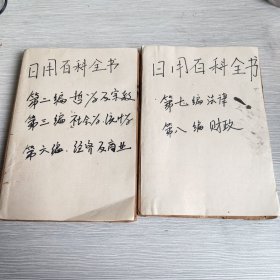 日用百科全书
第二编 哲学及宗教
第三编 社会学 统计学
第六编 经济及商业
日用百科全书
第七编 法律
第八编 财政